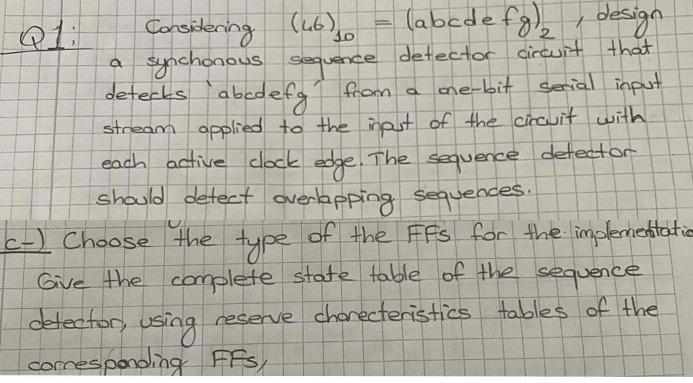 Q1: Considering (46)10 = (abcdefg)2 , design
a synchonous sequence detector circuit that
detects 'abcdefg' from a one-bit serial input
stream applied to the input of the circuit with
each active clock edge. The sequence detector
should detect overlapping sequences.
c-) Choose the type of the FFs for the implementatio
Give the complete state table of the sequence
detector, using reserve charecteristics tables of the
corresponding FFs,